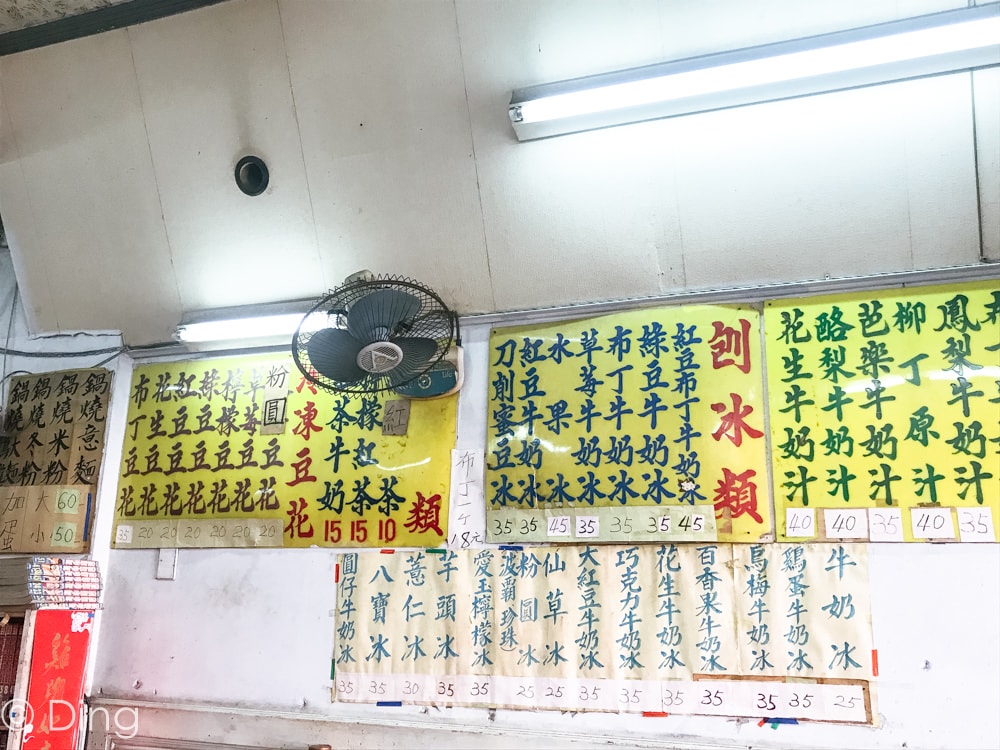 鍋燒意麵
鍋燒米粉
鍋燒冬粉
加蛋
大 60
小 50
冷凍豆花
草莓豆花 20
檸檬豆花 20
綠豆豆花 20
紅豆豆花 20
花生豆花 20
布丁豆花 35
粉圓
類
紅
茶 10
檬紅茶 15
茶牛奶 15
布丁一個 18元
刨冰類
紅豆布丁牛奶冰 45
綠豆牛奶冰 35
布丁牛奶冰 35
草莓牛奶冰 35
水果冰 45
紅豆牛奶冰 35
刀削蜜豆冰 35
鳳梨牛奶汁 35
柳丁原汁 40
芭樂牛奶汁 35
酪梨牛奶汁 40
花生牛奶汁 40
牛奶冰 25
鷄蛋牛奶冰 35
烏梅牛奶冰 35
百香果牛奶冰 35
花生牛奶冰 35
巧克力牛奶冰 35
大紅豆牛奶冰 35
仙草冰 25
粉圓冰 25
(波霸珍珠)
愛玉檸檬冰 35
芋頭冰 35
薏仁冰 30
八寶冰 35
圓仔牛奶冰 35
© Ding